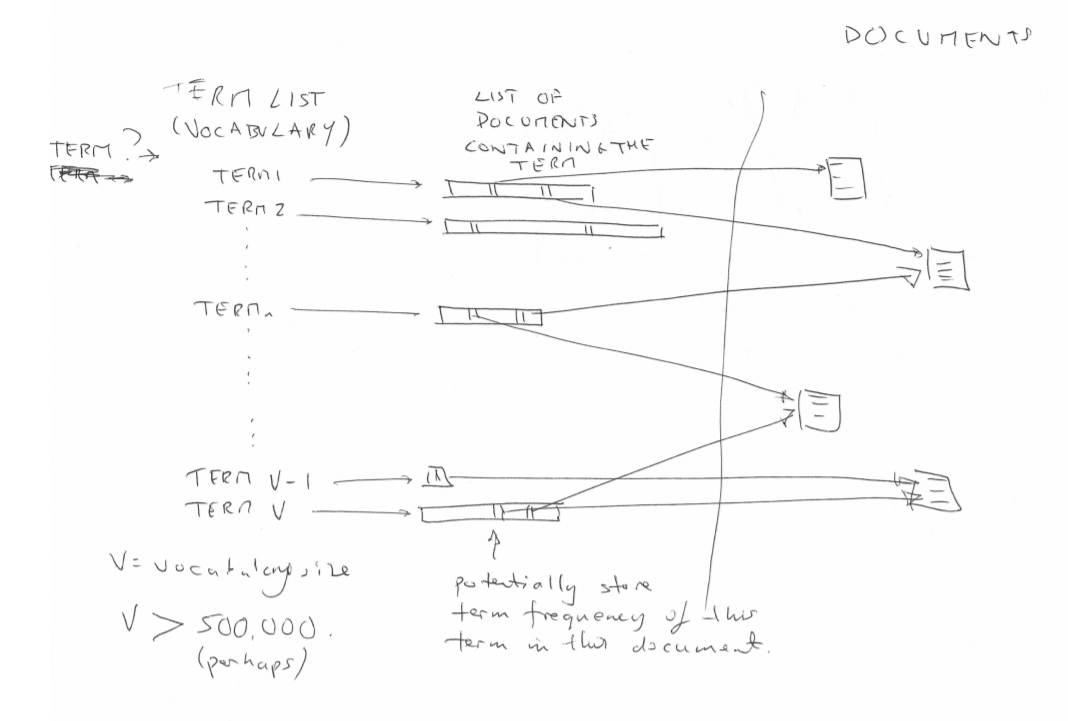 DOCUMENTS
TERM LIST
(VOCABULARY)
TERM ? →
LIST OF
DOCUMENTS
CONTAINING THE
TERM
TERM 1
TERM 2
TERM n
TERM V-1
TERM V
V = vocabulary size
V > 500,000.
(perhaps)
potentially store
term frequency of this
term in this document.